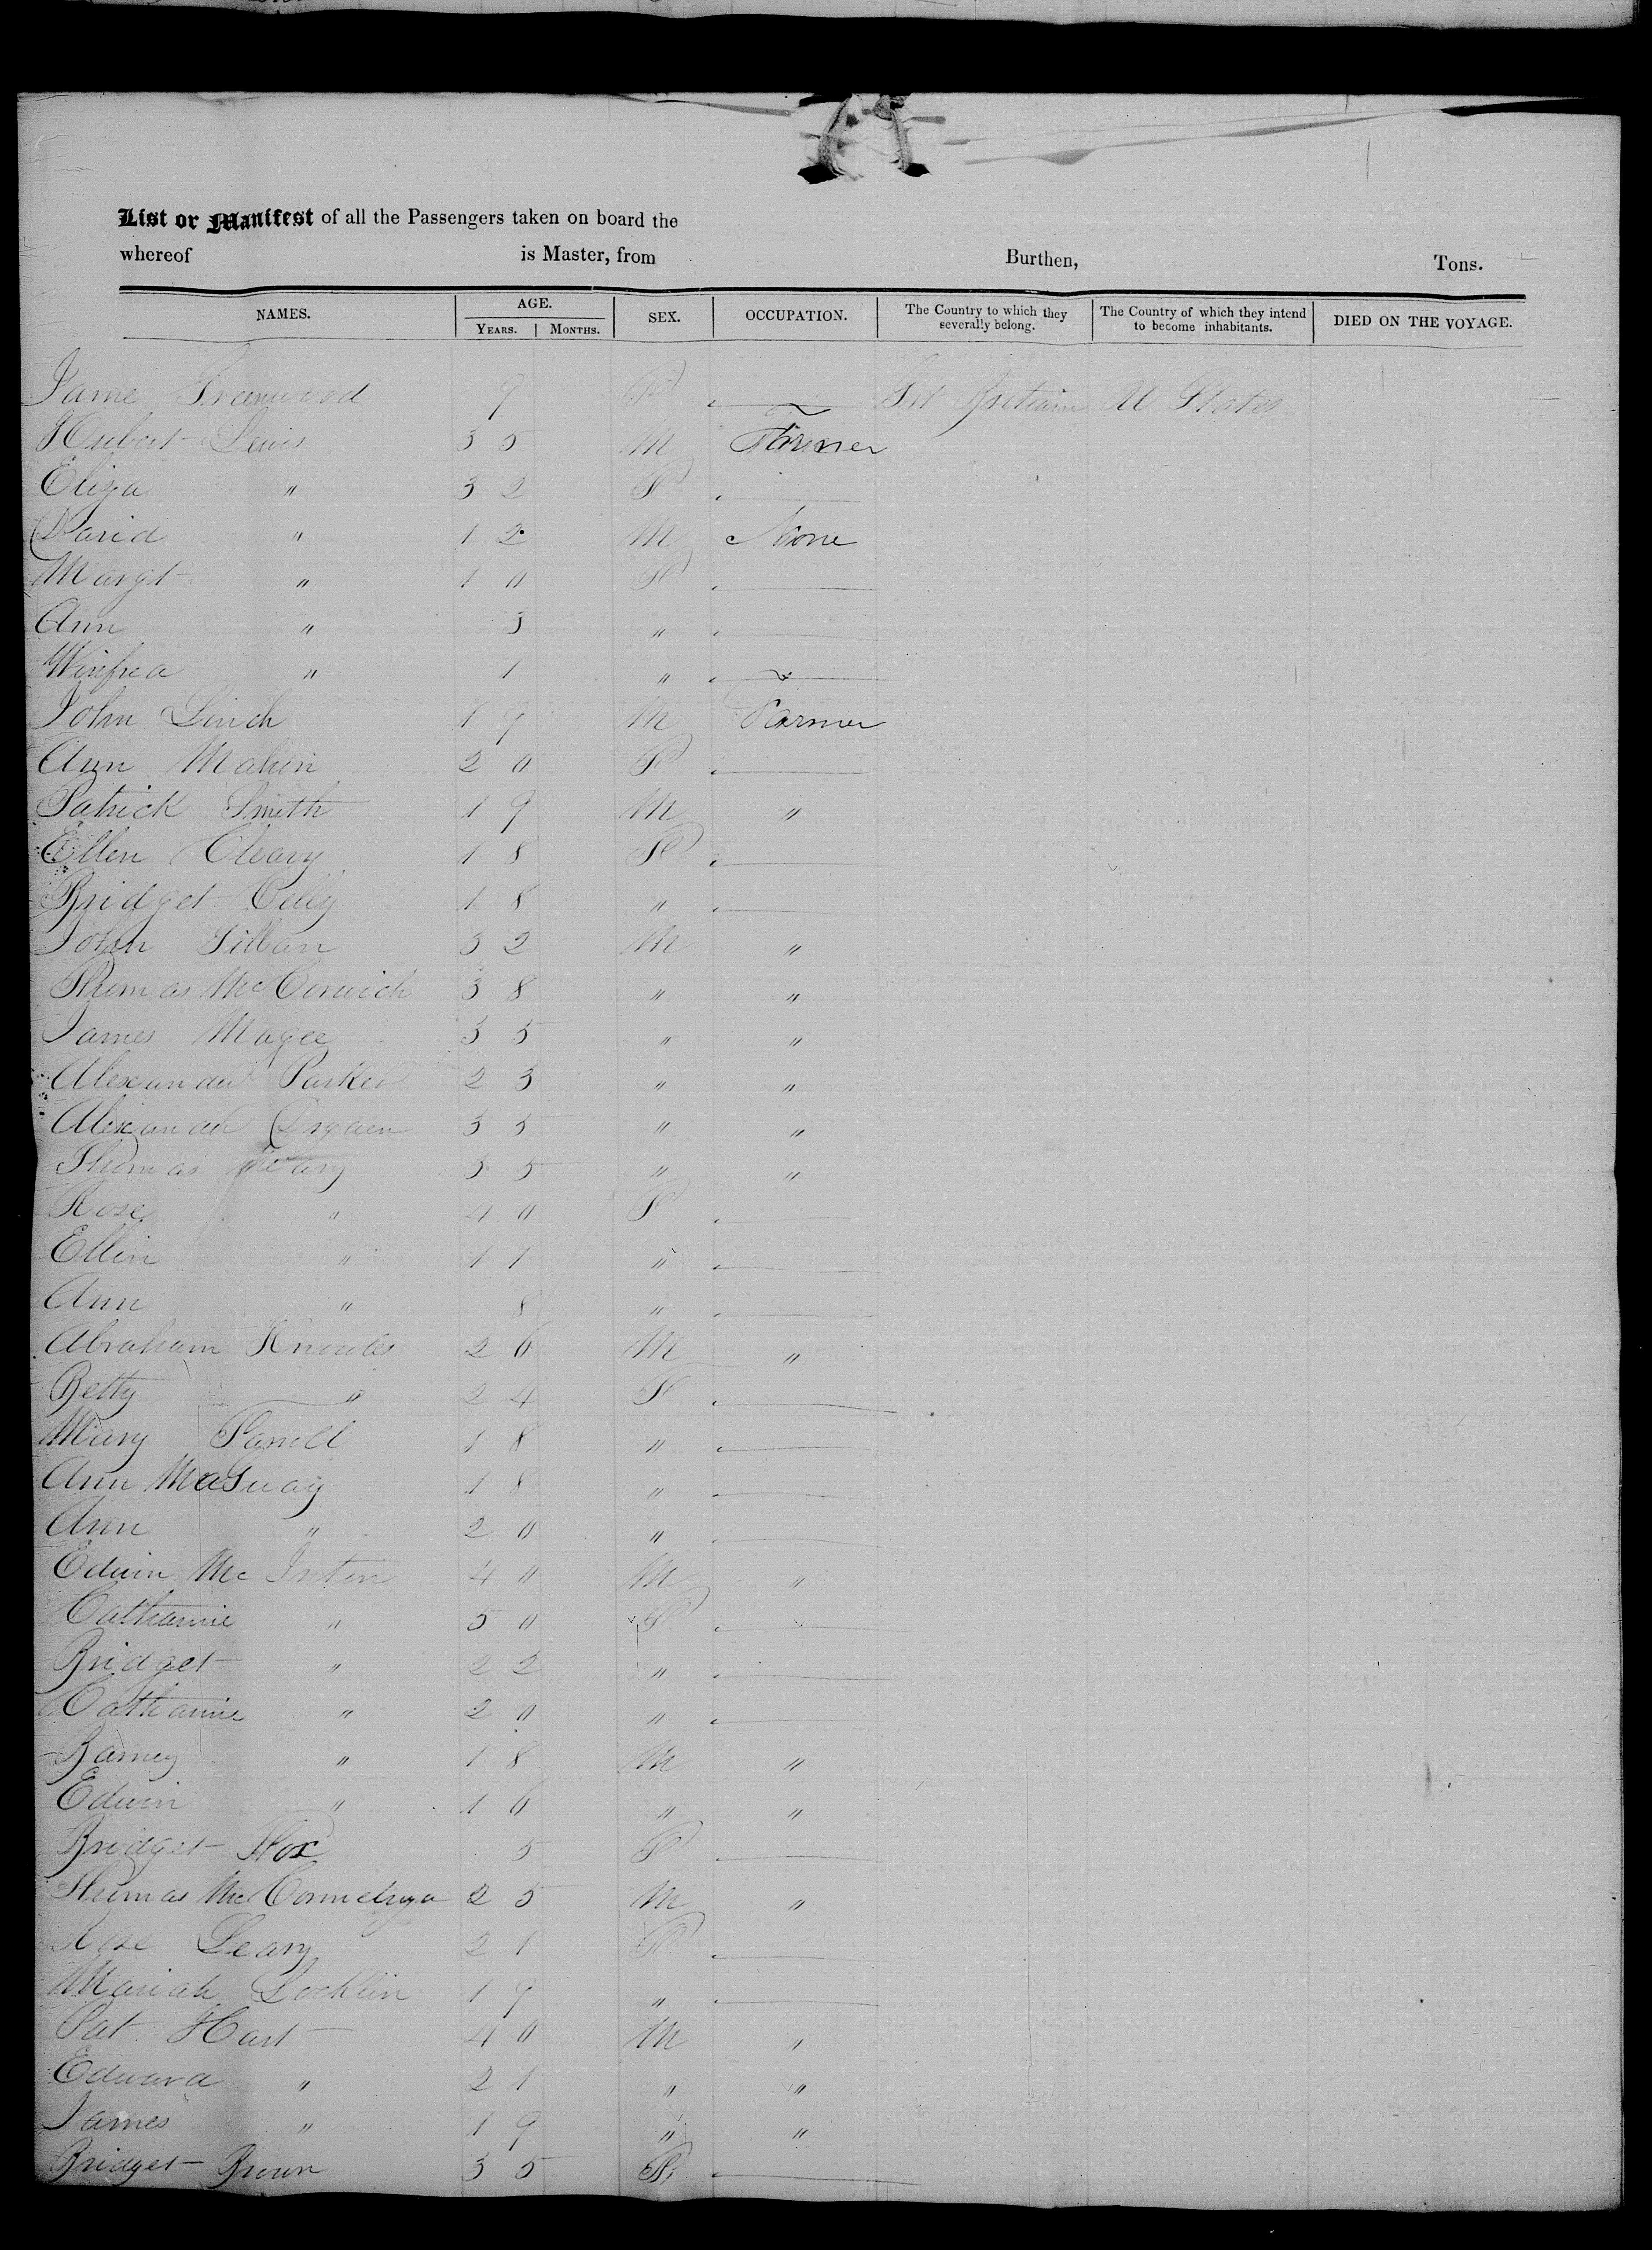 List or Manifest of all the Passengers taken on board the
whereof is Master, from Burthen, Tons.
NAMES. AGE. SEX. OCCUPATION. The Country to which they severally belong. The Country of which they intend to become inhabitants. DIED ON THE VOYAGE.
YEARS. MONTHS.
Jame Greenwood 9 F Grt Britain U States
Hubert Lewis 35 M Farmer
Eliza " 32 F
David " 12 M None
Margt " 10 F
Ann " 3 "
Winfred " 1 "
John Linch 19 M Farmer
Ann Mahin 20 F
Patrick Smith 19 M "
Ellen Cleary 18 F
Bridget Celly 18 "
John Gillan 32 M "
Thomas McCorwich 38 " "
James Magee 35 " "
Alexander Parker 23 " "
Alexander 35 " "
Thomas 35 " "
Rose " 40 F
Ellin " 11 "
Ann " 8 "
Abraham Knowles 26 M "
Betty " 24 F
Mary Farrell 18 "
Ann 18 "
Ann " 20 "
Edwin Mc 40 M "
Catharine " 50 F
Bridget " 22 "
Catharine " 20 "
Barney " 18 M "
Edwin " 16 " "
Bridget Fox 5 F
Thomas 25 M "
Rose Leary 21 F
Mariah Locklin 19 "
Pat Hart 40 M "
Edward " 21 " "
James " 19 " "
Bridget Brown 35 F